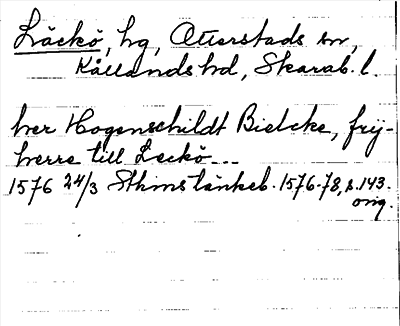 Läckö, hg, Otterstads sn,
Kållands hd, Skarab. l.
her Hogenschildt Bielcke, frij-
herre till Leckö---
1576 24/3 Sthms tänkeb. 1576-78, s. 143.
orig.